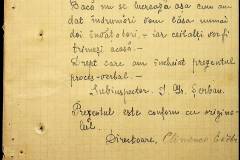 Dacă nu se lucrează așa cum am
dat îndrumări vom lăsa numai
doi învățători - iar ceilalți vor fi
trimeși acasă -
Drept care am încheiat prezentul
proces-verbal. -
Subinspector. I. Gr. Șerban.
Prezentul este conform cu origina-
lul.
Directoare,